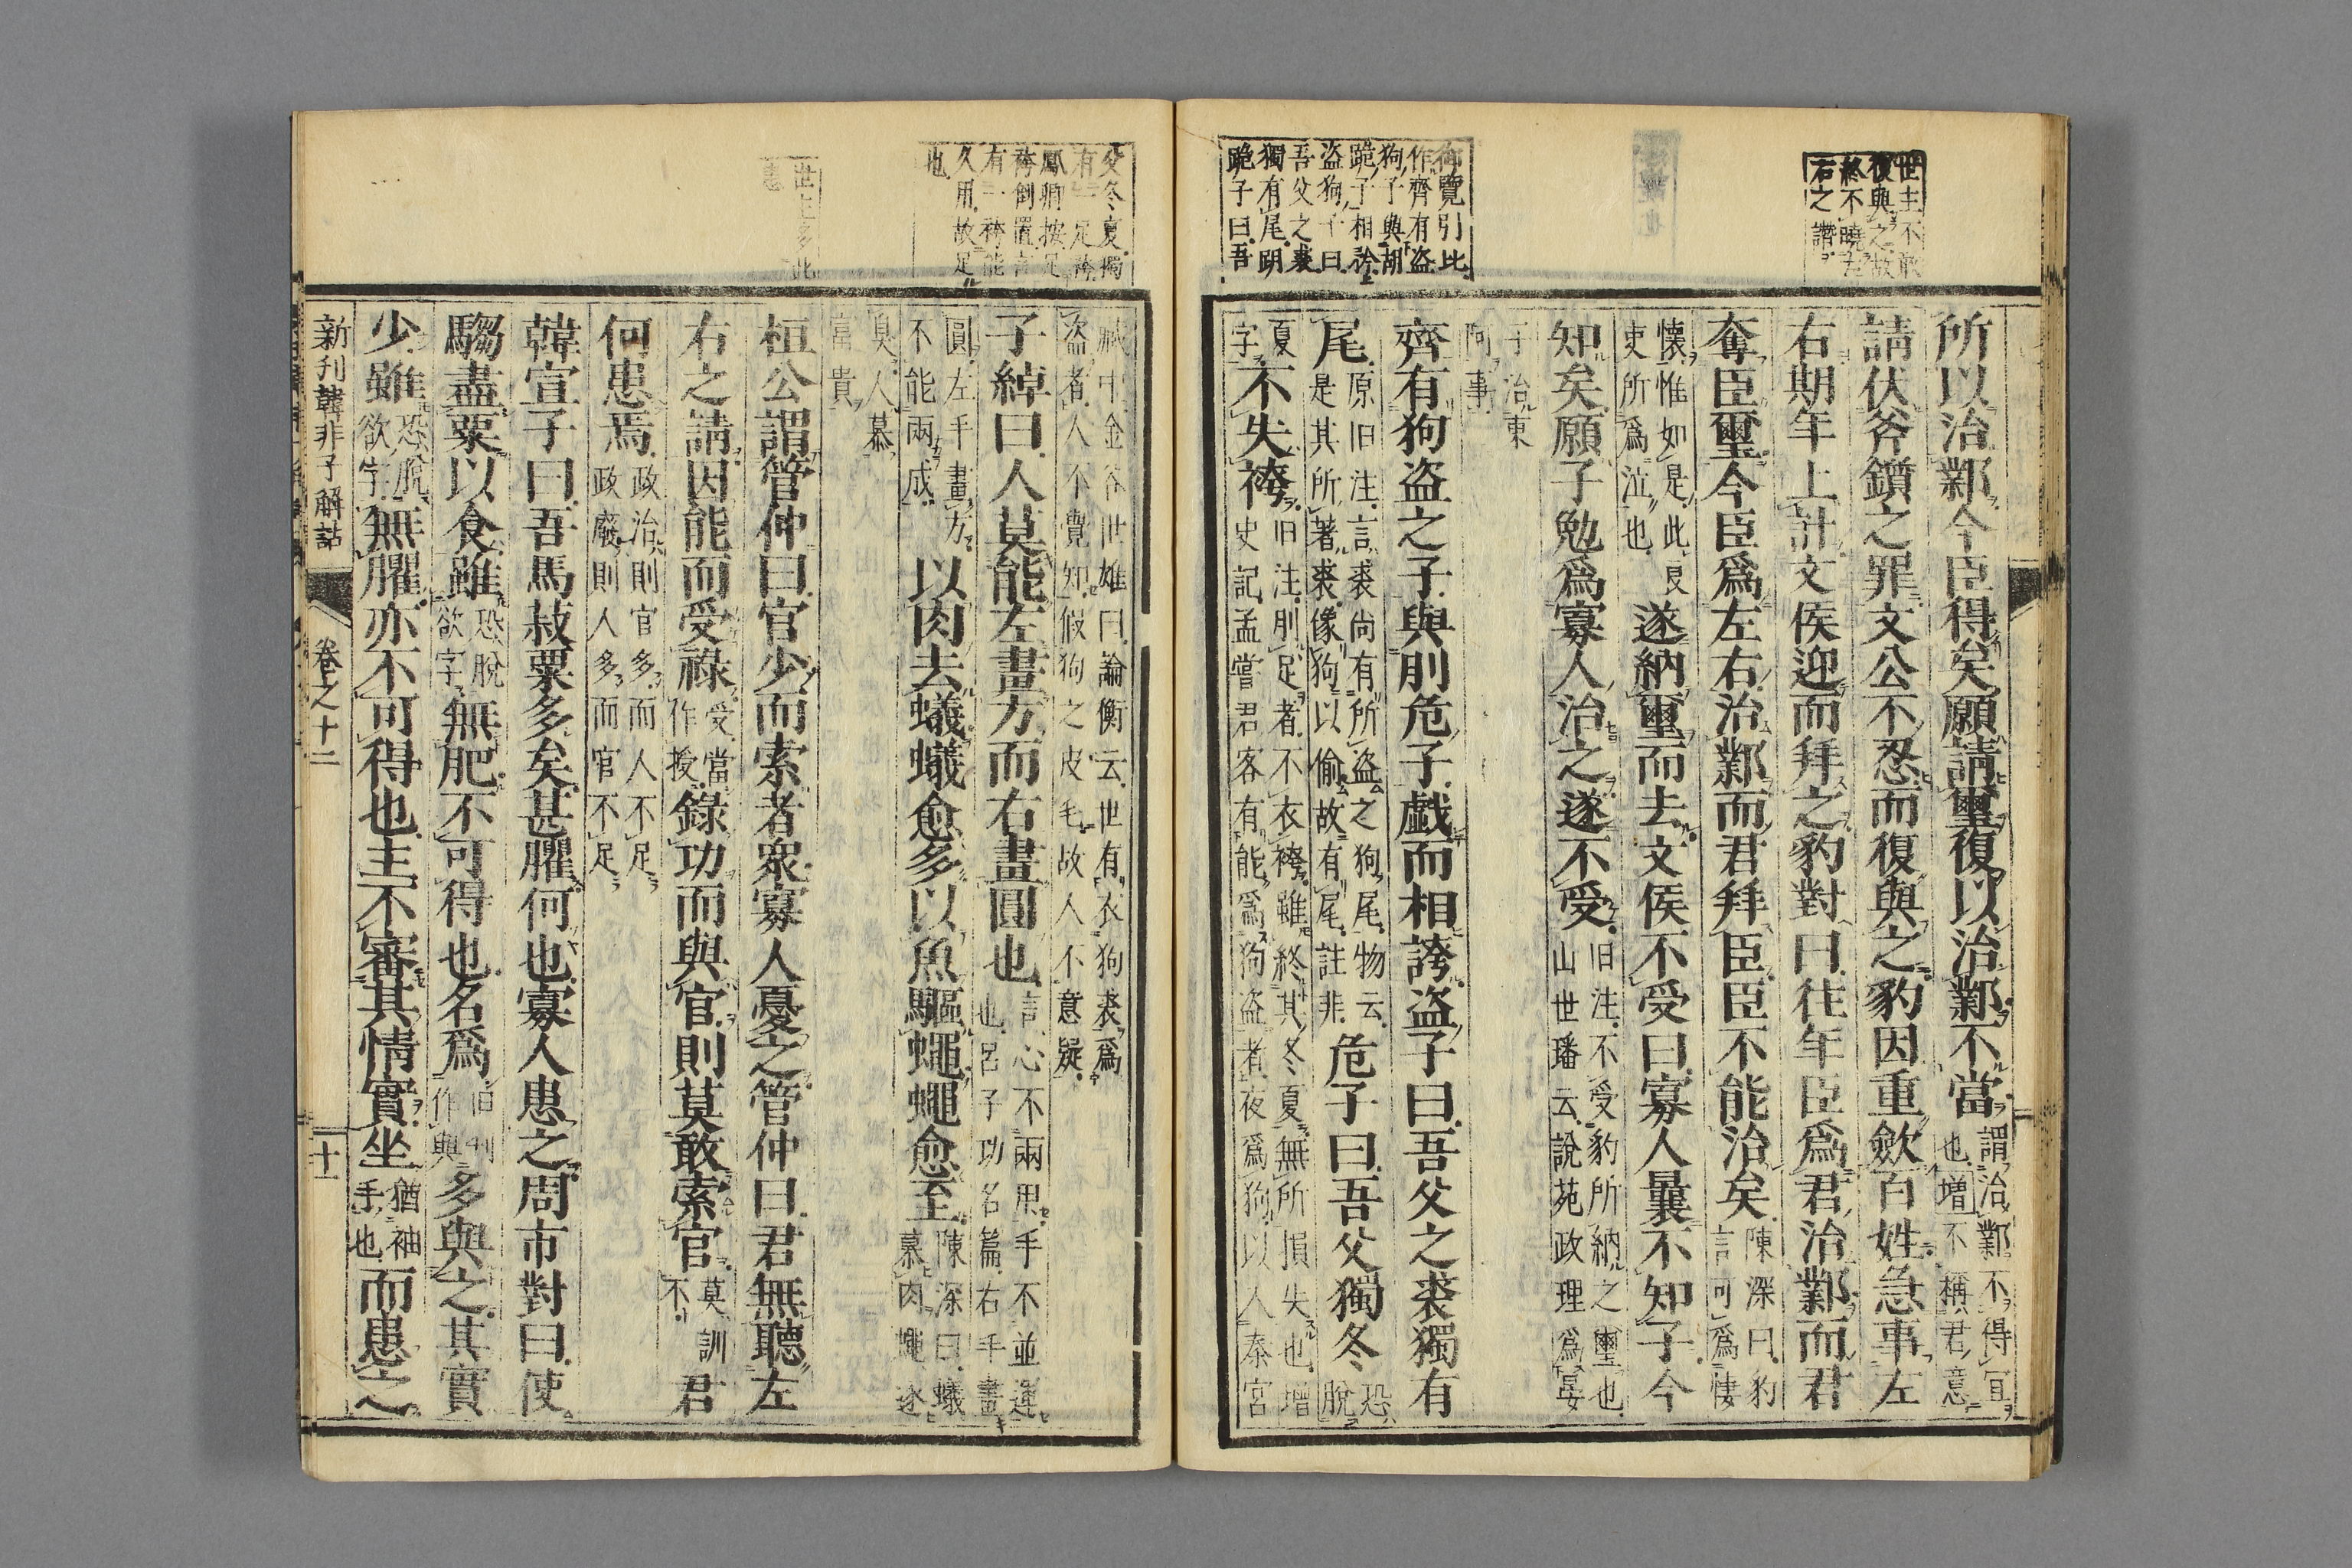 世主不敢
復與之故
終不曉左
右之譖
所以治鄴今臣得矣願請璽復以治鄴不當謂治鄴不得宜
也增不稱君意
請伏斧鑕之罪文公不忍而復與之豹因重斂百姓急事左
右期年上計文侯迎而拜之豹對曰往年臣爲君治鄴而君
奪臣璽今臣爲左右治鄴而君拜臣臣不能治矣陳深曰豹
言可爲悽
懷惟如是此良
吏所爲泣也遂納璽而去文侯不受曰寡人曩不知子今
知矣願子勉爲寡人治之遂不受旧注不受豹所納之璽也
山世璠云說苑政理爲晏
子治東
阿事
御覽引此
作齊有盜
狗子與胡
跪子相矜
盜狗子曰
吾父之裘
獨有尾跀
跪子曰吾
齊有狗盜之子與刖危子戯而相誇盜子曰吾父之裘獨有
尾原旧注言裘尚有所盜之狗尾物云
是其所著裘像狗以偷故有尾註非危子曰吾父獨冬恐
脫
夏
字不失袴旧注刖足者不衣袴雖終其冬夏無所損失也增
史記孟嘗君客有能爲狗盜者夜爲狗以入秦宮
父冬夏獨
有一足袴
鳳卿按足
袴倒置言
有一袴能
久用故足
也
臧中金谷世雄曰論衡云世有衣狗裘爲
盜者人不覺知假狗之皮毛故人不意疑
子綽曰人莫能左畫方而右畫圓也言心不兩用手不並運
也呂子功名篇右手畫
圓左手畫方
不能兩成以肉去蟻蟻愈多以魚驅蠅蠅愈至陳深曰蟻
慕肉蠅逐
臭人慕
富貴
世主多此
患
桓公謂管仲曰官少而索者衆寡人憂之管仲曰君無聽左
右之請因能而受祿受當
作授錄功而與官則莫敢索官莫訓
不君
何患焉政治則官多而人不足
政廢則人多而官不足
韓宣子曰吾馬菽粟多矣甚臞何也寡人患之周市對曰使
騶盡粟以食雖恐脫
欲字無肥不可得也名爲旧刊
作與多與之其實
少雖恐脫
欲字無臞亦不可得也主不審其情實坐猶袖
手也而患之
新刊韓非子解詁
卷之十二
十一